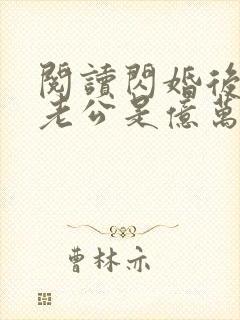 閱讀閃婚後
老公是億萬
曹林亦